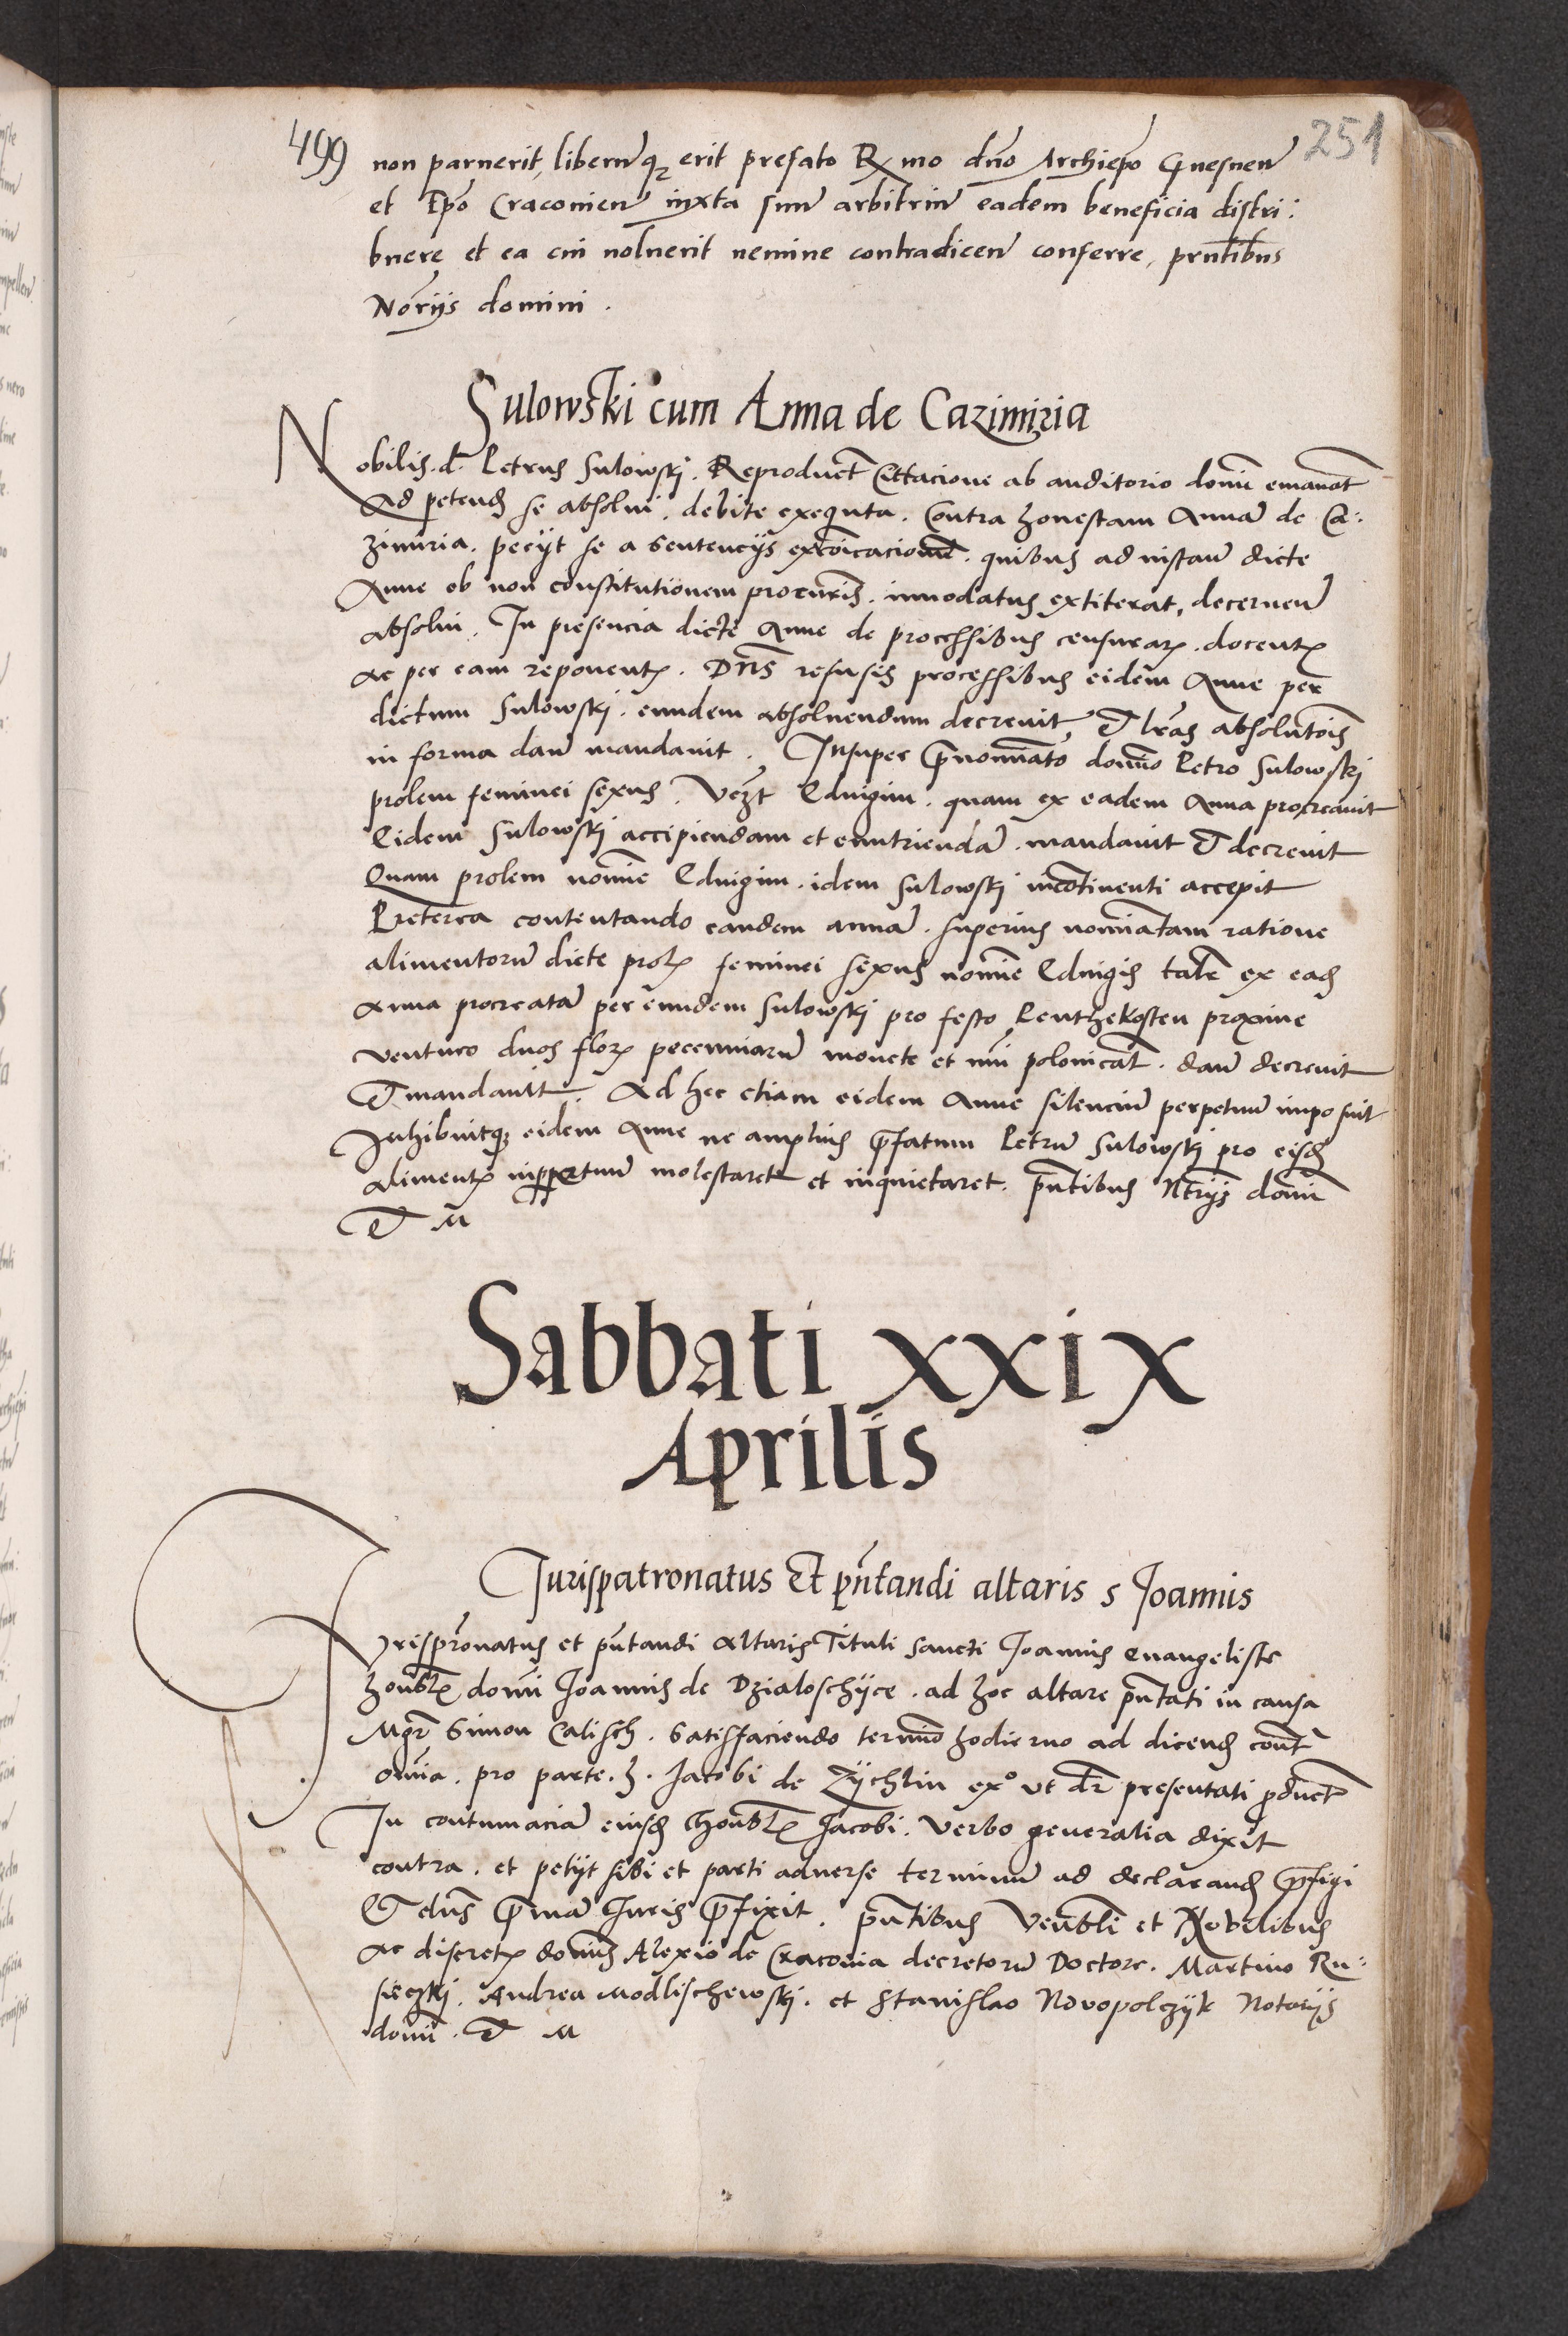 499 251
non paruerit, liberumq3 erit prefato Rx mo dño Archiepo Gnesneñ
et Epo Cracovieñ iuxta suum arbitrium eadem beneficia distri:
buere et ea cui voluerit nemine contradiceñ conferre, prñtibus
Norijs domini.
Sulowski cum Anna de Cazimiria
Nobilis. d. Petrus Sulowski. Reproducta Cittacione ab auditorio domi emanat
Ad petend se absolvi. debite exequuta. Contra honestam Annã de Ca:
zimiria. petijt se a sentencijs excoicacionũ. quibus ad instañ dicte
Anne ob non constitutionem procuris. innodatus extiterat, decerneñ
absolvi. In presencia dicte Anne de processibus censurar. docent
ac per eam reponent. Dns refusis processibus eidem Anne per
dictum Sulowski. eundem absoluendum decrevit, Et lras absolutois
in forma dañ mandavit. Insuper prenominato domino Petro Sulowski
prolem feminei sexus. vezt Eduigim. quam ex eadem Anna procreavit
Eidem Sulowski accipiendam et enutriendã. mandavit Et decrevit
Quam prolem nomine Eduigim. idem Sulowski incontinenti accepit
Preterea contentando eandem annã. superius nominatam ratione
alimentorũ dicte prol feminei sexus nomine Eduigis tale ex ead
Anna procreatã per eundem Sulowski pro festo Penthekosten proxime
venturo duos flor pecenniarũ monete et nui polonicat. dañ decrevit
Et mandavit. Ad hec etiam eidem Anne silenciũ perpetuũ imposuit
Inhibuitq3 eidem Anne ne amplius prefatum Petrũ Sulowski pro eisd
aliment inpertuũ molestaret et inquietaret. pñtibus Ntrijs domi
Et M
Sabbati xxix
Aprilis
Jurispatronatus Et pñtandi altaris s Joannis
Jurispronatus et pñtandi Altaris Tituli sancti Joannis evangeliste
honbl domi Joannis de Dzialoschÿce. ad hoc altare pñtati in causa
Mgr Simon Calisch. Satisfaciendo termino hodierno ad dicend cont
omia. pro parte. h. Jacobi de Zÿchlin ex° ut dr presentati product
In contumaciã eiusd honbl Jacobi. Verbo generalia dixit
contra. et petijt sibi et parti adverse terminũ ad declarand prefigi
Et dns primã Juris prefixit. pñtibus Venbli et Nobilibus
ac discret domis Alexio de Cracovia decretorũ Doctore. Martino Ru:
sieczki. Andrea Modlischewski. et Stanislao Novopolczÿk Notarijs
domi. Et M